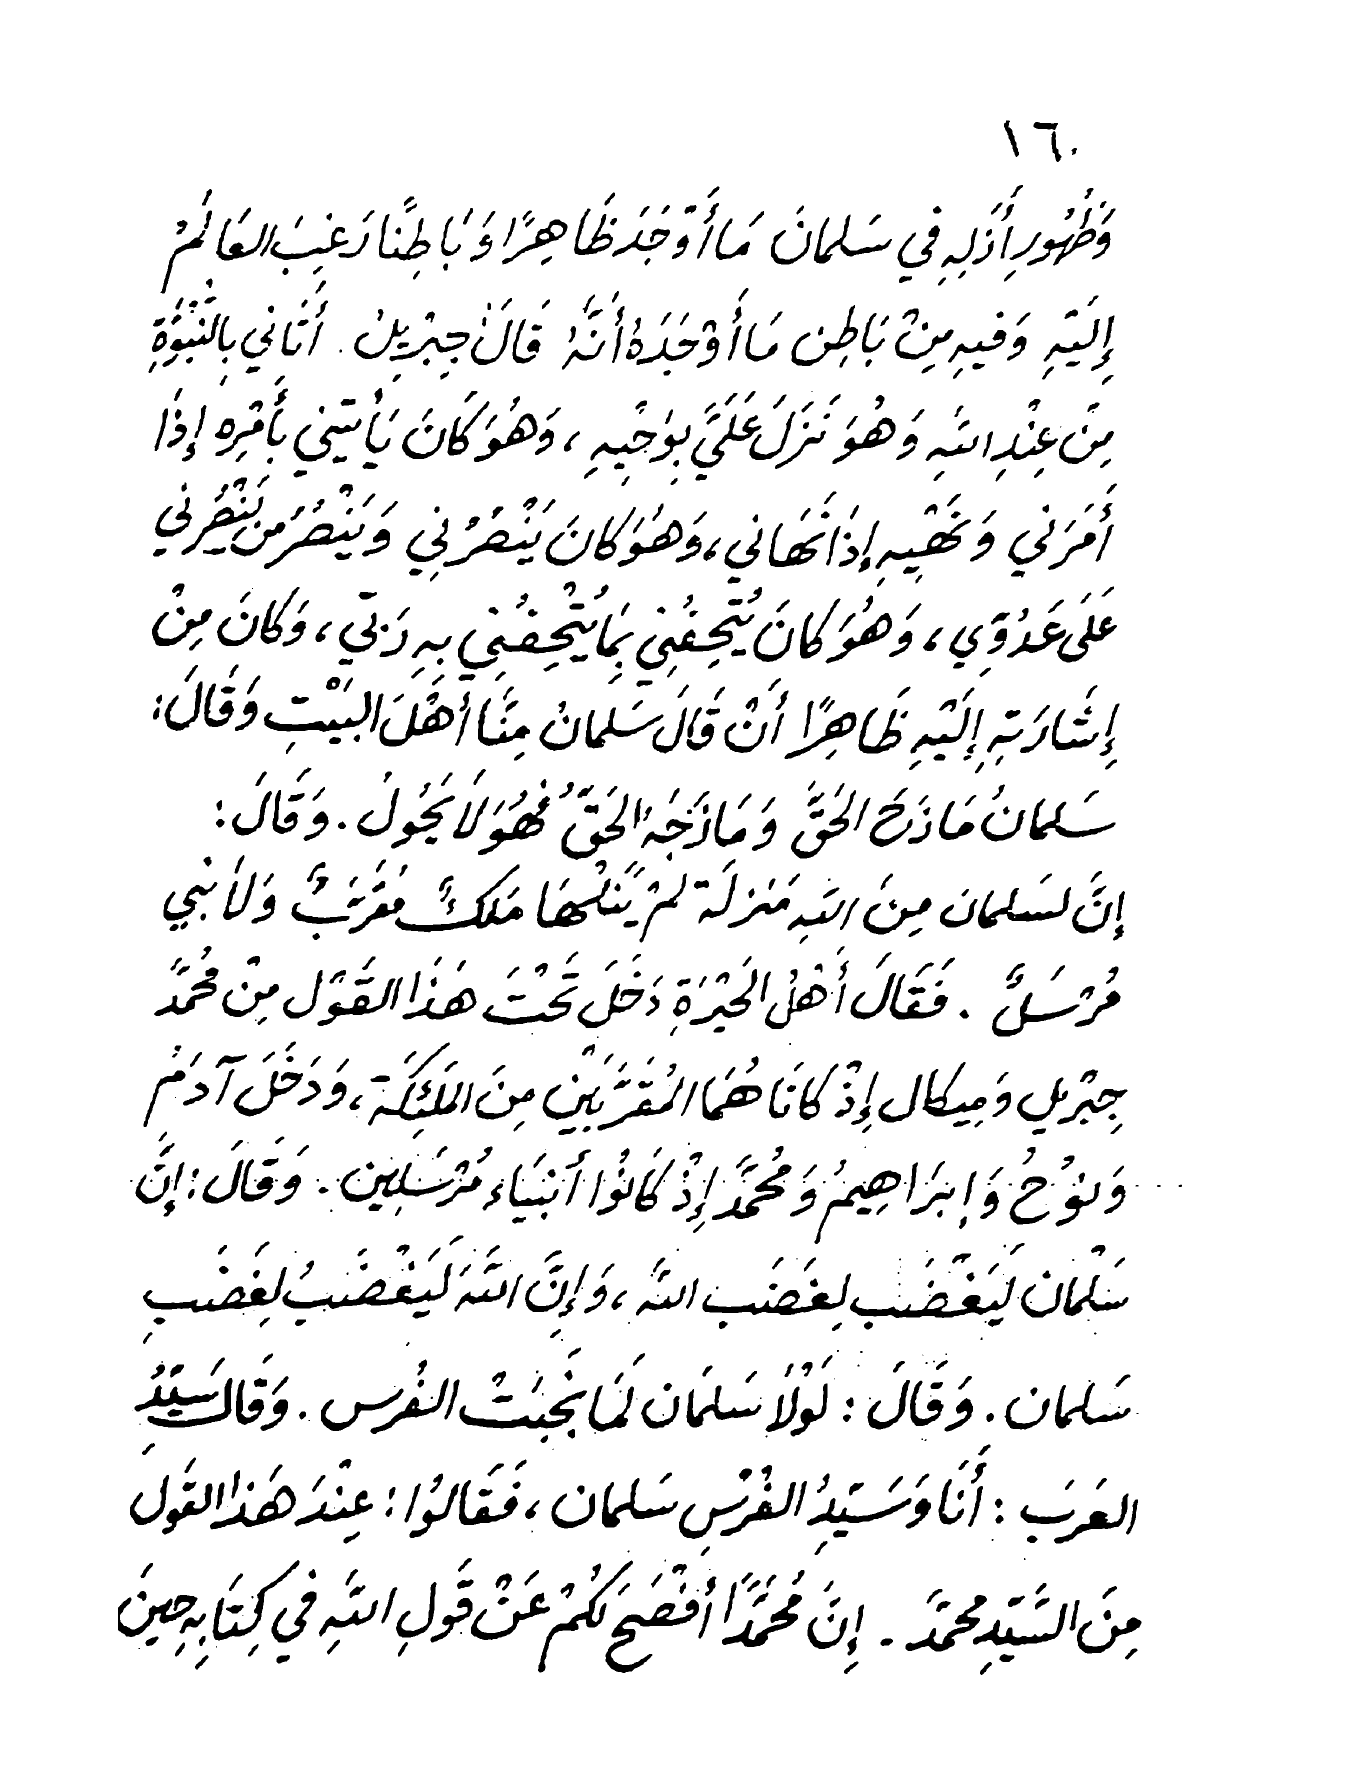 ١٦٠
وَظُهُورِ أَزَلِهِ فِي سَلمانَ مَا أَوْجَدَ ظَاهِرًا وَبَاطِنًا رَغِبَ العَالَمُ
إِلَيْهِ وَفيهِ مِنْ بَاطِن مَا أَوْجَدَهُ أَنَّهُ قَالَ جِبْرِيلُ . أَتَانِي بِالنُّبُوَّةِ
مِنْ عِنْدِ اللهِ وَهُوَ نَزَلَ عَلَيَّ بِوَحْيِهِ ، وَهُوَ كَانَ يَأْتيني بِأَمْرِهِ إِذَا
أَمَرَني وَنَهْيِهِ إِذَا نَهَاني ، وَهُوَ كانَ يَنْصُرُنِي وَيَنْصُرُ مَن يَنْصُرُني
عَلَى عَدُوِّي ، وَهُوَ كانَ يُتْحِفُنِي بِمَا يُتْحِفُنِي بِهِ رَبِّي ، وَكانَ مِنْ
إِشَارَتِهِ إِلَيْهِ ظَاهِرًا أَنْ قَالَ سَلمانُ مِنَّا أَهْلَ البَيْتِ وَقَالَ :
سَلمانُ مَازَجَ الحَقَّ وَمَازَجَهُ الحَقُّ فَهُوَ لَا يَحُولُ . وَقَالَ :
إِنَّ لسَلمان مِنَ اللهِ مَنزلَة لَمْ يَنَلْهَا مَلَكٌ مُقَرَّبٌ وَلَا نبي
مُرْسَلٌ . فَقَالَ أَهْلُ الحَيْرَةِ دَخَلَ تَحْتَ هَذَا القَوْل مِنْ مُحَمَّد
جِبْريل وَمِيكال إِذْ كانَا هُمَا المُقَرَّبَيْنِ مِنَ المَلَئِكَة ، وَدَخَلَ آدَمُ
وَنوُحُ وَإِبرَاهِيمُ وَمُحَمَّد إِذْ كَانُوا أَنبيَاء مُرْسَلِين . وَقَالَ : إِنَّ
سَلْمان لَيَغْضَب لِغَضَب اللهِ ، وَإِنَّ اللهَ لَيَغْضَبُ لِغَضَبِ
سَلمان . وَقَالَ : لَوْلَا سَلمَان لَمَا نَجَبَتْ الفُرس . وَقَال سَيِّدُ
العَرَب : أَنَا وَسَيِّدُ الفُرْسِ سَلمان ، فَقَالوُا : عِنْدَ هَذَا القَول
مِنَ السَّيِّدِ محمَّد . إِنَّ مُحَمَّدًا أَفْصَحَ لَكُمْ عَنْ قَولِ اللهِ في كِتَابِهِ حِينَ